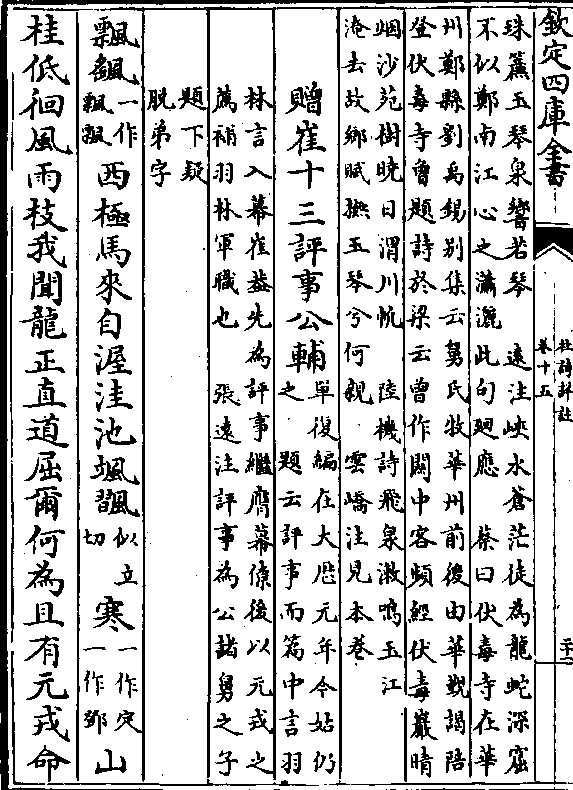 欽定四庫全書
杜詩詳註
卷十五
二十一
珠簾玉琴泉響若琴　遠注峽水蒼茫徒為龍蛇深窟
不似鄭南江心之瀟灑此句廻應　蔡曰伏毒寺在華
州鄭縣劉禹錫别集云舅氏牧華州前後由華覲謁陪
登伏毒寺曾題詩於梁云曾作關中客頻經伏毒巖晴
烟沙苑樹曉日渭川帆　陸機詩飛泉漱鳴玉江
淹去故鄉賦撫玉琴兮何親　雲嶠注見本卷
贈崔十三評事公輔單復編在大厯元年今姑仍
之　題云評事而篇中言羽
林言入幕崔葢先為評事繼膺幕僚後以元戎之
薦補羽林軍職也　張遠注評事為公諸舅之子
題下疑
脱弟字
飄颻一作飄飄西極馬來自渥洼池颯飁似立切寒一作定一作鄧山
桂低徊風雨枝我聞龍正直道屈爾何為且有元戎命